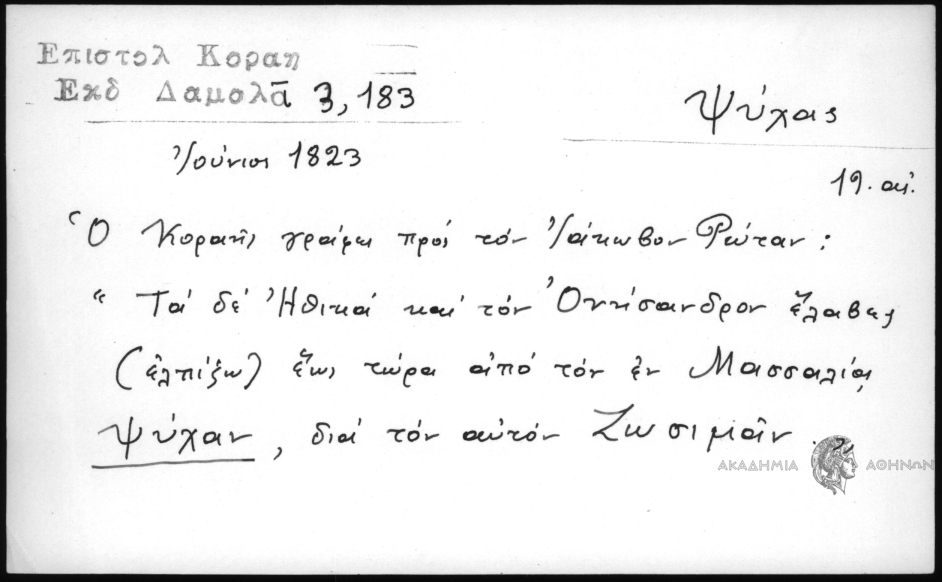 Επιστολ Κοραη
Εκδ Δαμαλᾶ 3, 183
Ψύχας
Ἰούνιος 1823
19. αἰ.
Ὁ Κοραῆς γράφει πρός τόν Ἰάκωβον Ρώταν:
" Τά δέ Ἠθικά καί τόν Ὀνήσανδρον ἔλαβες
(ἐλπίζω) ἕως τώρα ἀπό τόν ἐν Μασσαλίᾳ
Ψύχαν, διά τόν αὐτόν Ζωσιμᾶν."
ΑΚΑΔΗΜΙΑ ΑΘΗΝΩΝ